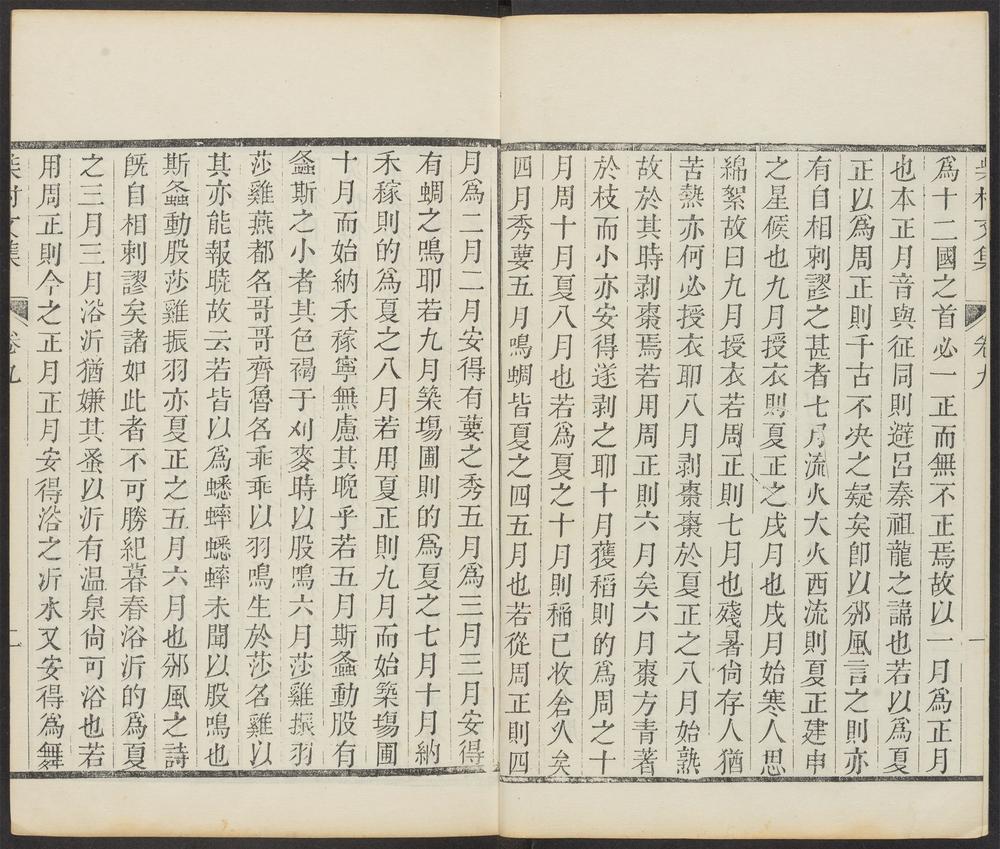 文集
卷九
一
爲十二國之首必一正而無不正焉故以一月爲正月
也本正月音與征同則避呂秦祖龍之諱也若以爲夏
正以爲周正則千古不决之疑矣卽以邠風言之則亦
有自相刺謬之甚者七月流火大火西流則夏正建申
之星候也九月授衣則夏正之戌月也戌月始寒人思
綿絮故曰九月授衣若周正則七月也殘暑尙存人猶
苦熱亦何必授衣耶八月剥棗棗於夏正之八月始熟
故於其時剥棗焉若用周正則六月矣六月棗方青著
於枝而小亦安得遂剥之耶十月獲稻則的爲周之十
月周十月夏八月也若爲夏之十月則稻已收倉久矣
四月秀葽五月鳴蜩皆夏之四五月也若從周正則四
月爲二月二月安得有葽之秀五月爲三月三月安得
有蜩之鳴耶若九月築場圃則的爲夏之七月十月納
禾稼則的爲夏之八月若用夏正則九月而始築塲圃
十月而始納禾稼寧無慮其晚乎若五月斯螽動股有
螽斯之小者其色褐于刈麥時以股鳴六月莎雞振羽
莎雞燕都名哥哥齊魯名乖乖以羽鳴生於莎名雞以
其亦能報曉故云若皆以爲蟋蟀蟋蟀未聞以股鳴也
斯螽動股莎雞振羽亦夏正之五月六月也邠風之詩
旣自相刺謬矣諸如此者不可勝紀暮春浴沂的爲夏
之三月三月浴沂猶嫌其蚤以沂有温泉尙可浴也若
用周正則今之正月正月安得浴之沂水又安得爲舞
村文集
卷九